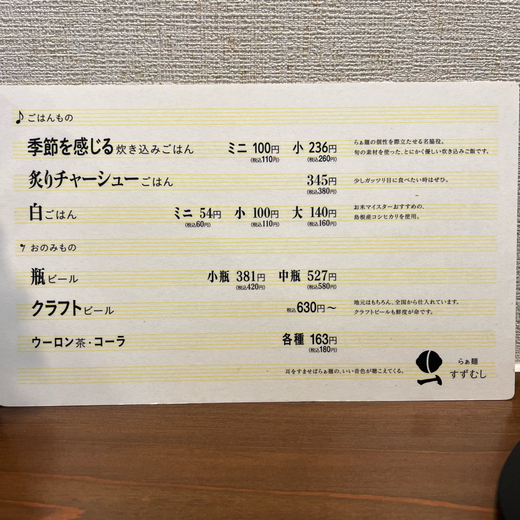 ♪ ごはんもの
季節を感じる炊き込みごはん ミニ 100円 (税込110円) 小 236円 (税込260円)
らぁ麺の個性を際立たせる名脇役。
旬の素材を使った、とにかく優しい炊き込みご飯です。
炙りチャーシューごはん 345円 (税込380円) 少しガッツリ目に食べたい時はぜひ。
白ごはん ミニ 54円 (税込60円) 小 100円 (税込110円) 大 140円 (税込160円)
お米マイスターおすすめの、
島根産コシヒカリを使用。
おのみもの
瓶ビール 小瓶 381円 (税込420円) 中瓶 527円 (税込580円)
クラフトビール 税込630円〜
地元はもちろん、全国から仕入れています。
クラフトビールも鮮度が命です。
ウーロン茶・コーラ 各種 163円 (税込180円)
耳をすませばらぁ麺の、いい音色が聴こえてくる。
らぁ麺
すずむし